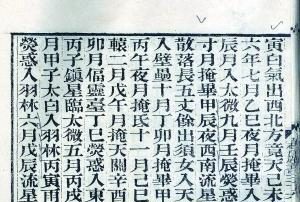 寅白氣出西北方竟天己未
六年七月乙巳夜月掩畢入
辰月入太微九月壬辰熒惑
寸月掩畢甲辰夜西南流星
散落長五丈餘出須女入天
入壁壘十月丁卯月掩畢
丙午夜月掩氐十一月己巳
轅二月戊午月掩天關辛酉
卯月偪靈臺丁巳熒惑入東
丙子鎮星臨太微五月丙戌
月甲子太白入月丙寅
熒惑入羽林六月戊辰流星